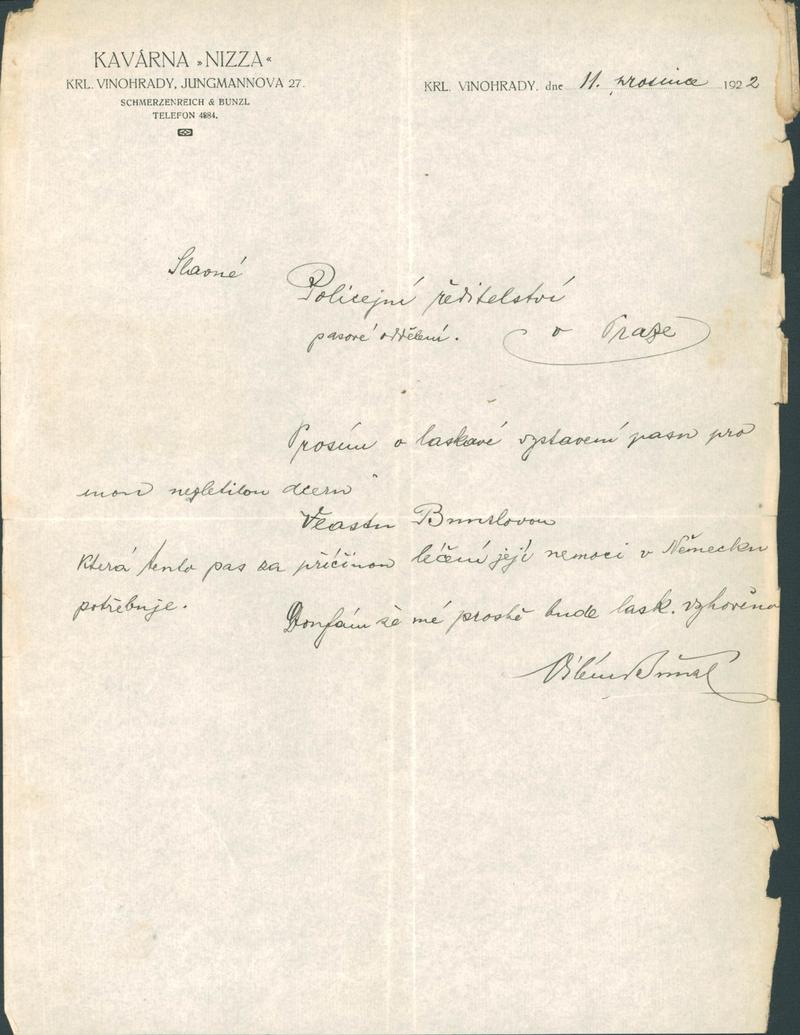 KAVÁRNA »NIZZA«
KRL. VINOHRADY, JUNGMANNOVA 27.
SCHMERZENREICH & BUNZL
TELEFON 4884.
KRL. VINOHRADY, dne 11. prosince 1922
Slavné
Policejní ředitelství
pasové oddělení.
v Praze
Prosím o laskavé vystavení pasu pro
mou nezletilou dceru
Vlastu Bunzlovou
která tento pas za příčinou léčení její nemoci v Německu
potřebuje.
Doufám že mé prosbě bude lask. vyhověno
Vilém Bunzl